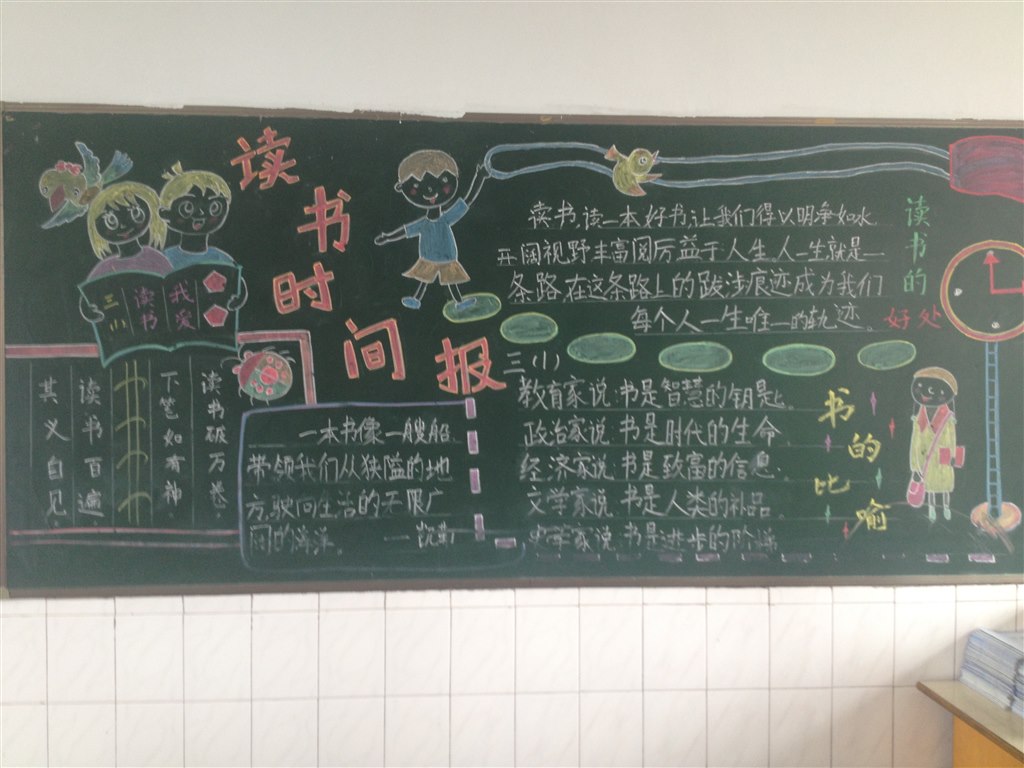 读书时间报
我爱
读书
三
小
读书破万卷
下笔如有神
读书百遍
其义自见
一本书像一艘船
带领我们从狭隘的地
方,驶向生活的无限广
阔的海洋。
读书,读一本好书,让我们得以明净如水
开阔视野丰富阅历益于人生。人一生就是一
条路,在这条路上的跋涉痕迹成为我们
每个人一生唯一的轨迹。
读书的
好处
三(1)
教育家说:书是智慧的钥匙。
政治家说:书是时代的生命
经济家说:书是致富的信息.
文学家说:书是人类的补品。
史学家说:书是进步的阶梯
书的比喻